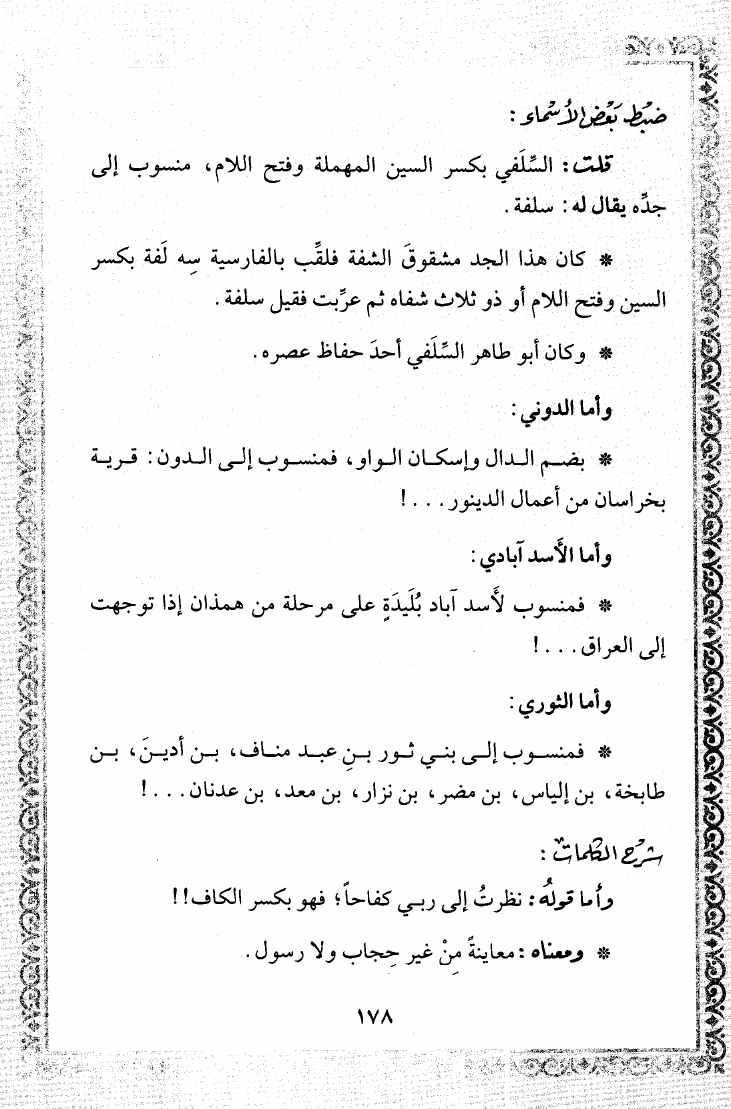 ضبط بعض الأسماء :
قلت: السِّلَفي بكسر السين المهملة وفتح اللام، منسوب إلى
جدِّه يقال له: سلفة.
* كان هذا الجد مشقوقَ الشفة فلقِّب بالفارسية سِه لَفة بكسر
السين وفتح اللام أو ذو ثلاث شفاه ثم عرِّبت فقيل سلفة.
* وكان أبو طاهر السِّلَفي أحدَ حفاظ عصره.
وأما الدوني:
* بضم الدال وإسكان الواو، فمنسوب إلى الدون: قرية
بخراسان من أعمال الدينور...!
وأما الأَسد آبادي:
* فمنسوب لأَسد آباد بُلَيدَةٍ على مرحلة من همذان إذا توجهت
إلى العراق...!
وأما الثوري:
* فمنسوب إلى بني ثور بنِ عبد مناف، بن أدينَ، بن
طابخة، بن إلياس، بن مضر، بن نزار، بن معد، بن عدنان...!
شرح الكلمات :
وأما قولهُ: نظرتُ إلى ربي كفاحاً؛ فهو بكسر الكاف!!
* ومعناه: معاينةً مِنْ غير حِجاب ولا رسول.
١٧٨